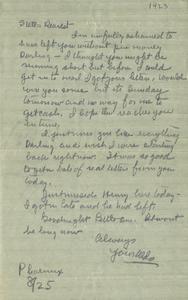 1923
Dearest
I am awfully ashamed to
have left you without pin money
Darling — I thought you might be
running about but before I could
get on to read I got your letter. I would
wire you some but its Sunday
tomorrow and no way for me to
get cash. I hope this reaches you
in time.
I just miss you like everything
Darling and wish I were starting
back right now. It was so good
to get a real letter from you
today.
Just missed Henry here today
I got in late and he had left.
Goodnight
be long now
Always
Yours
8/25